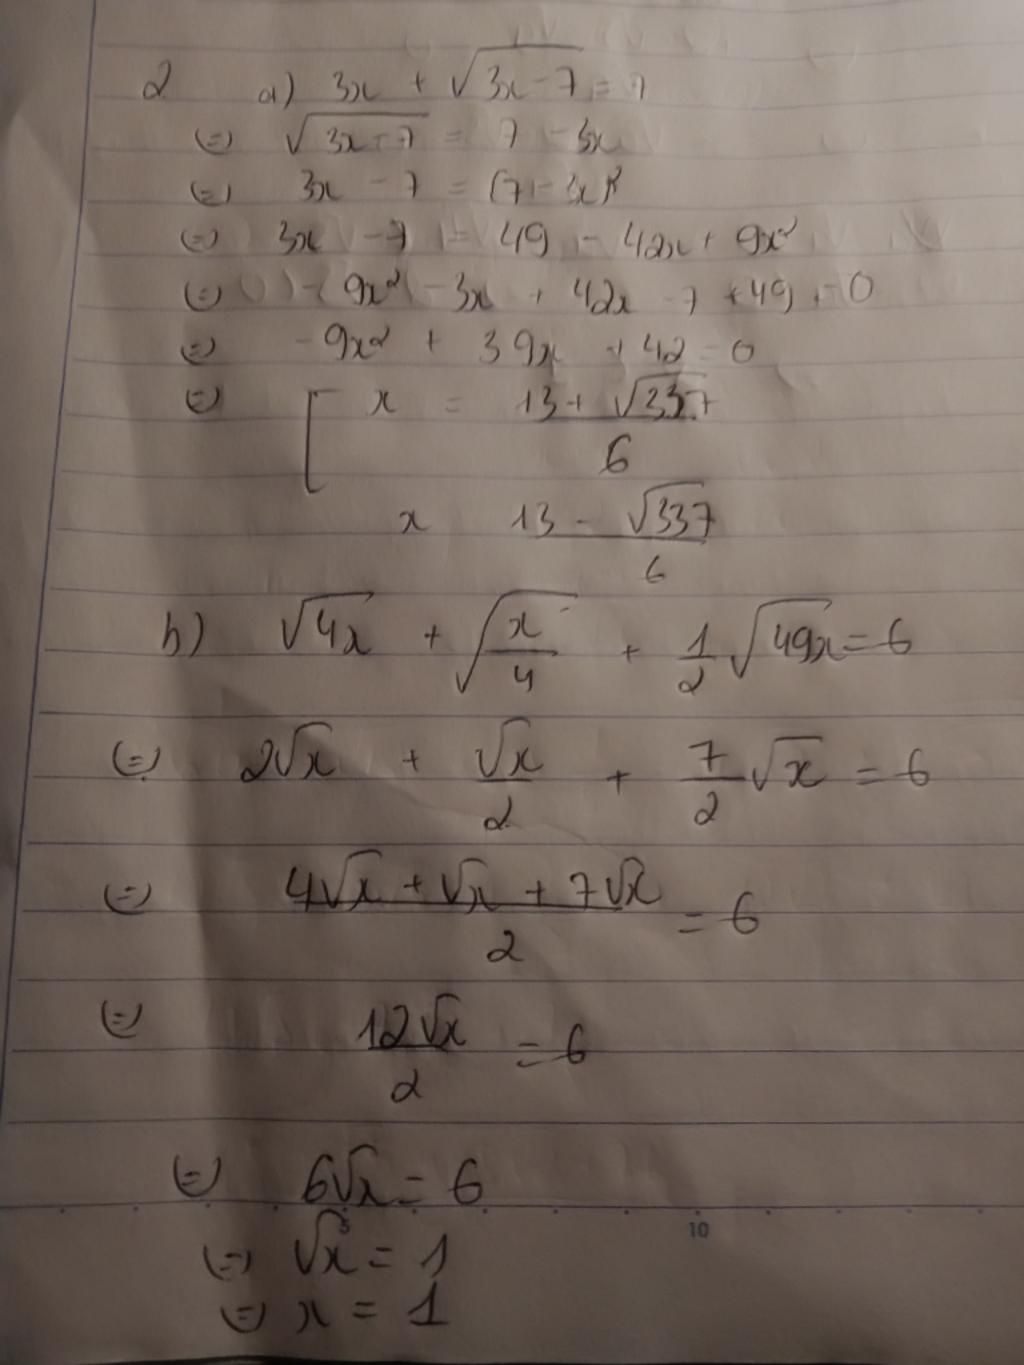 2 a) 3x + √(3x - 7) = 7
(=) √(3x - 7) = 7 - 3x
(=) 3x - 7 = (7 - 3x)²
(=) 3x - 7 = 49 - 42x + 9x²
(=) - 9x² - 3x + 42x - 7 + 49 = 0
(=) - 9x² + 39x + 42 = 0
(=) [ x = 13 + √337
6
x 13 - √337
6
b) √4x + √(x/4) + 1/2 √49x = 6
(=) 2√x + √x/2 + 7/2 √x = 6
(=) 4√x + √x + 7√x / 2 = 6
(=) 12√x / 2 = 6
(=) 6√x = 6
5 10
(=) √x = 1
(=) x = 1